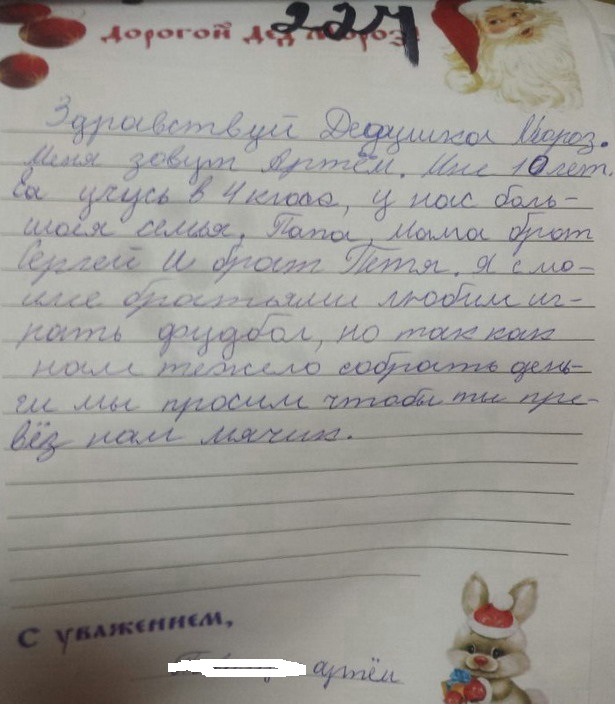 224
Дорогой Дед Мороз
Здравствуй Дедушка Мороз.
Меня зовут Артём. Мне 10 лет.
Я учусь в 4 класс, у нас боль-
шоея семья. Папа, мама брат
Сергей и брат Петя. Я с мо-
ими братьями любим иг-
рать фудбол, но так как
нам тежело собрать день-
ги мы просим чтобы ты при-
вёз нам мячик.
С уважением,
артём